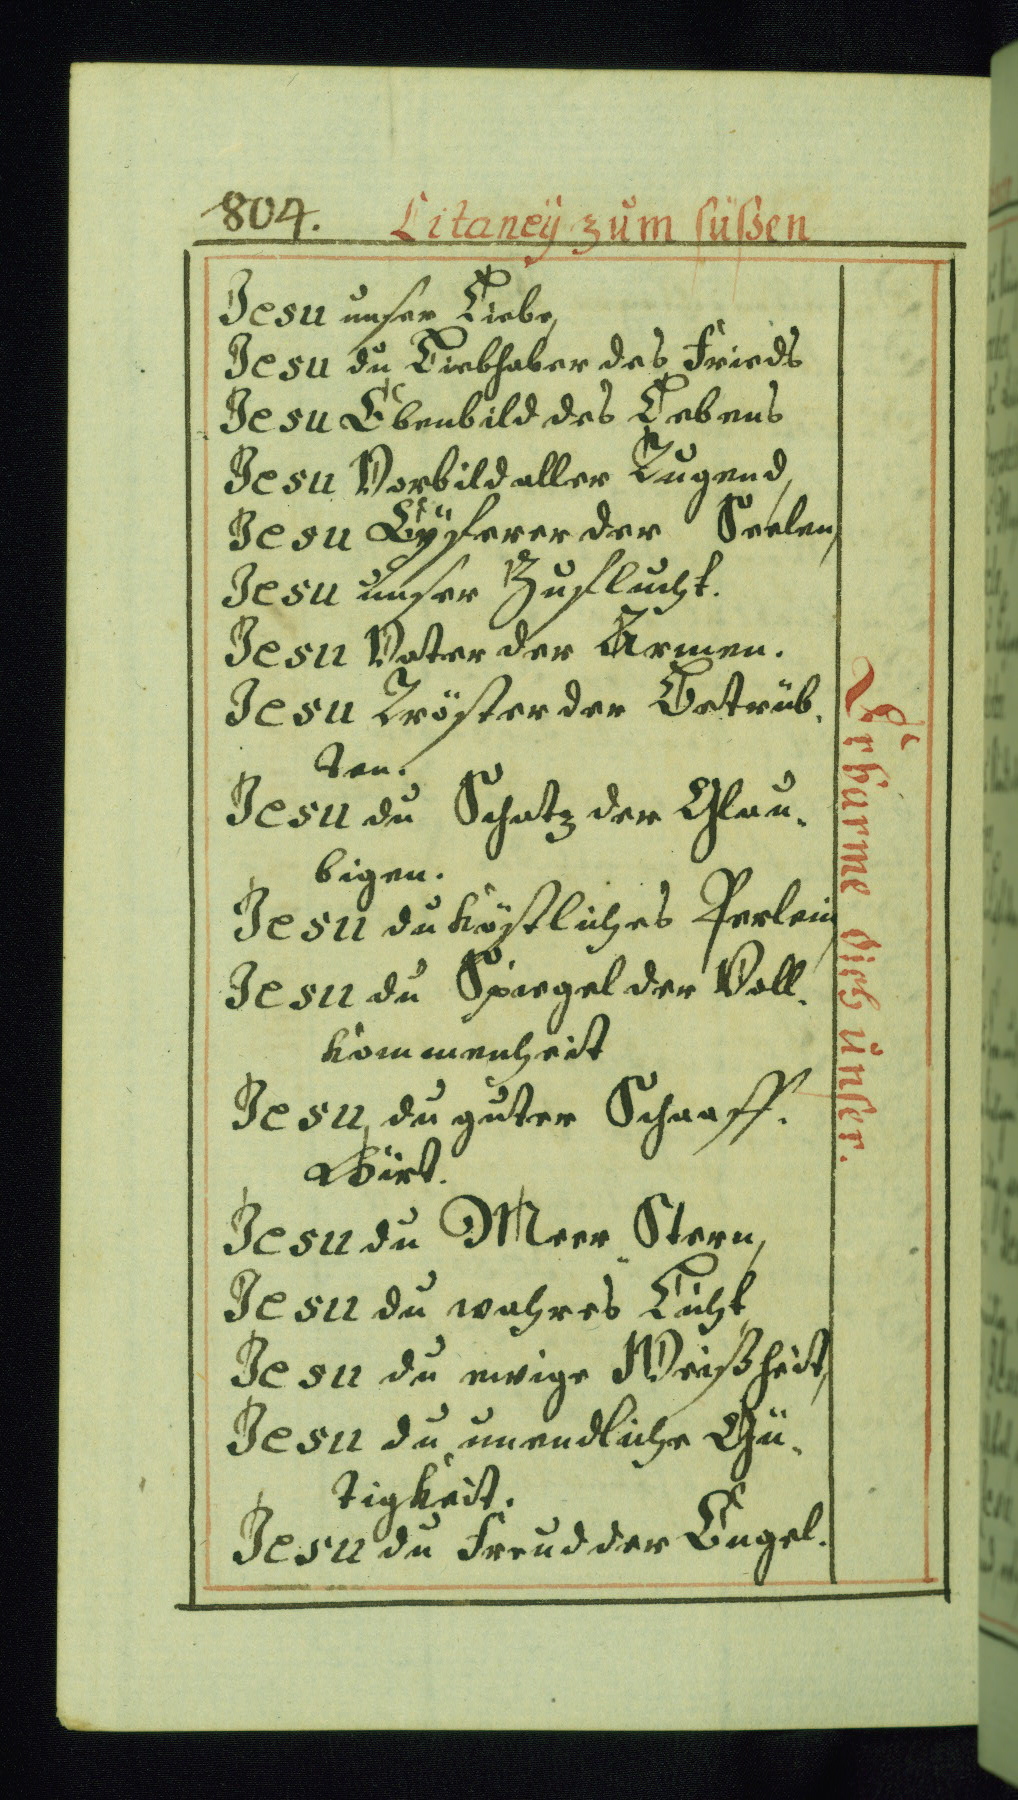 804. Litaneÿ zum süßen
Jesu unser Liebe,
Jesu du Liebhaber des Frieds
Jesu Ebenbild des Lebens
Jesu Vorbild aller Tugend,
Jesu Eÿferer der Seelen,
Jesu unser Zuflucht.
Jesu Vater der Armen.
Jesu Tröster der Betrüb-
ten.
Jesu du Schatz der Glau-
bigen.
Jesu du köstliches Perlein,
Jesu du Spiegel der Voll-
kommenheit
Jesu, du guter Schaaff-
Hirt.
Jesu du Meer Stern,
Jesu du wahres Licht,
Jesu du ewige Weißheit,
Jesu du unendliche Gü-
tigkeit.
Jesu du Freud der Engel.
Erbarme dich unser.